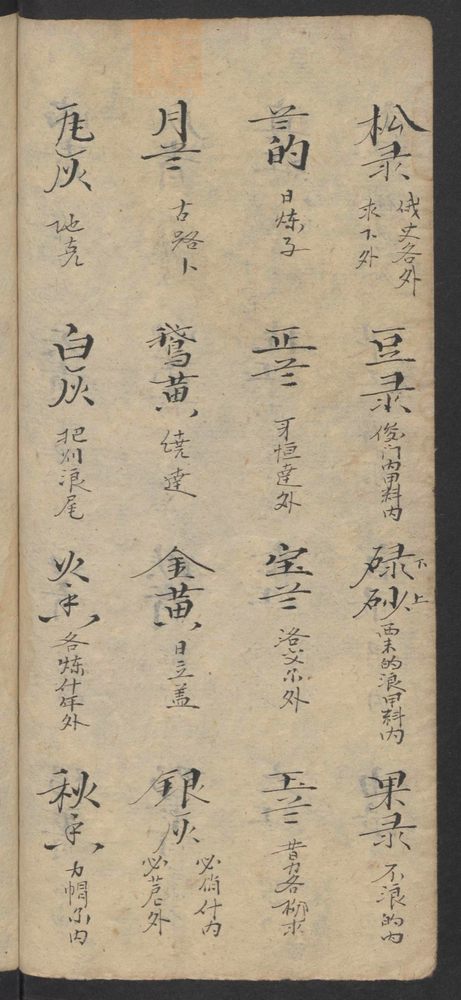 松录 俄丈各外
求下外
豆录 俊门内甲料内
碌砂 下上 西末的浪甲料内
果录 不浪的内
兰的 日炼子
正兰 牙恒達外
宝兰 洛父尔外
玉兰 昔力各柳求
月兰 古路卜
鹅黄 绕達
金黄 日立盖
银灰 必俏什内
必芭外
瓦灰 地克
白灰 把列浪尾
火 各炼什年外
秋香 力帽尔内